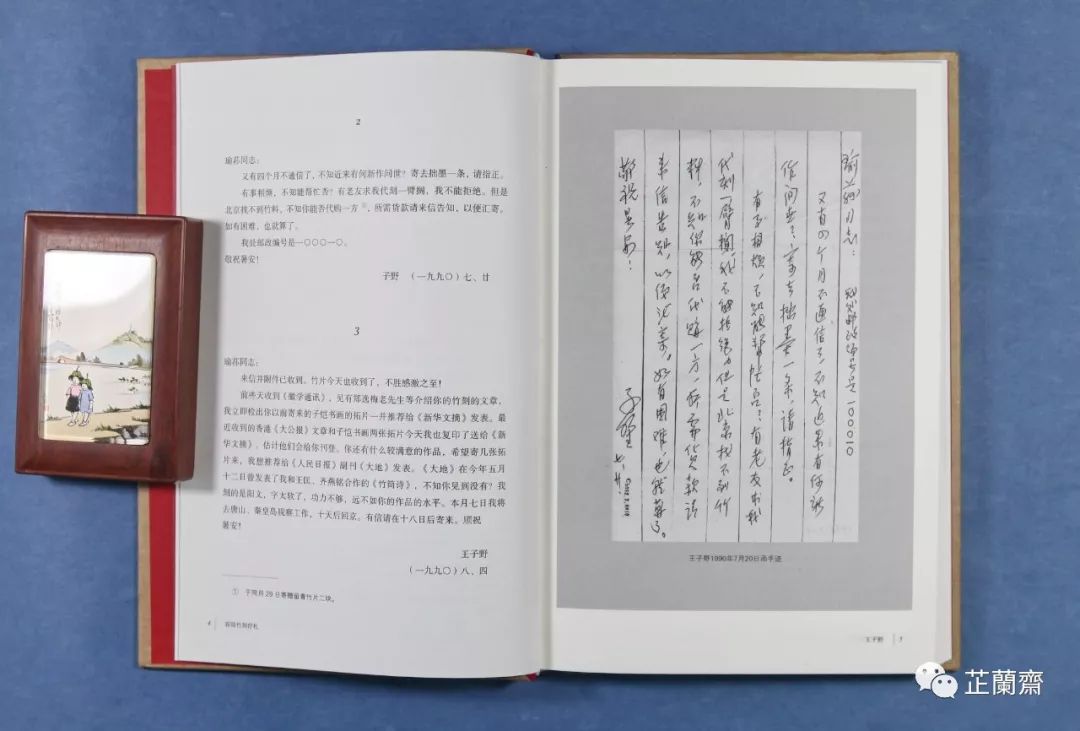 2
瑜荪同志：
又有四个月不通信了，不知近来有何新作问世？寄去拙墨一条，请指正。
有事相烦，不知能帮忙否？有老友求我代刻一臂搁，我不能拒绝。但是
北京找不到竹料。不知你能否代购一方①，所需货款请来信告知，以便汇寄。
如有困难，也就算了。
我处邮政编号是一〇〇〇一〇。
敬祝暑安！
子野 （一九九〇）七、廿
3
瑜荪同志：
来信并附件已收到。竹片今天也收到了，不胜感激之至！
前些天收到《徽学通讯》，见有郑逸梅老先生等介绍你的竹刻的文章。
我立即检出你以前寄来的子恺书画的拓片一并推荐给《新华文摘》发表。最
近收到的香港《大公报》文章和子恺书画两张拓片今天我也复印了送给《新
华文摘》。估计他们会给你刊登。你还有什么较满意的作品，希望寄几张拓
片来，我想推荐给《人民日报》副刊《大地》发表。《大地》在今年五月
十二日曾发表了我和王匡、齐燕铭合作的《竹简诗》，不知你见到没有？我
刻的是阳文，字太软了，功力不够，远不如你的作品的水平。本月七日我将
去唐山、秦皇岛视察工作，十天后回京。有信请在十八日后寄来。顺祝
暑安！
王子野
（一九九〇）八、四
① 于同月29日寄赠留青竹片二块。
4 竹刻存札
瑜荪同志： 我处邮政编号是一〇〇〇一〇
又有四个月不通信了，不知近来有何新
作问世？寄去拙墨一条，请指正。
有事相烦，不知能帮忙否？有老友求我
代刻一臂搁，我不能拒绝。但是北京找不到竹
料，不知你能否代购一方，所需货款请
来信告知，以便汇寄。如有困难，也就算了。
敬祝暑安！
子野 七、廿
王子野1990年7月20日函手迹
王子野 5
芷蘭齋